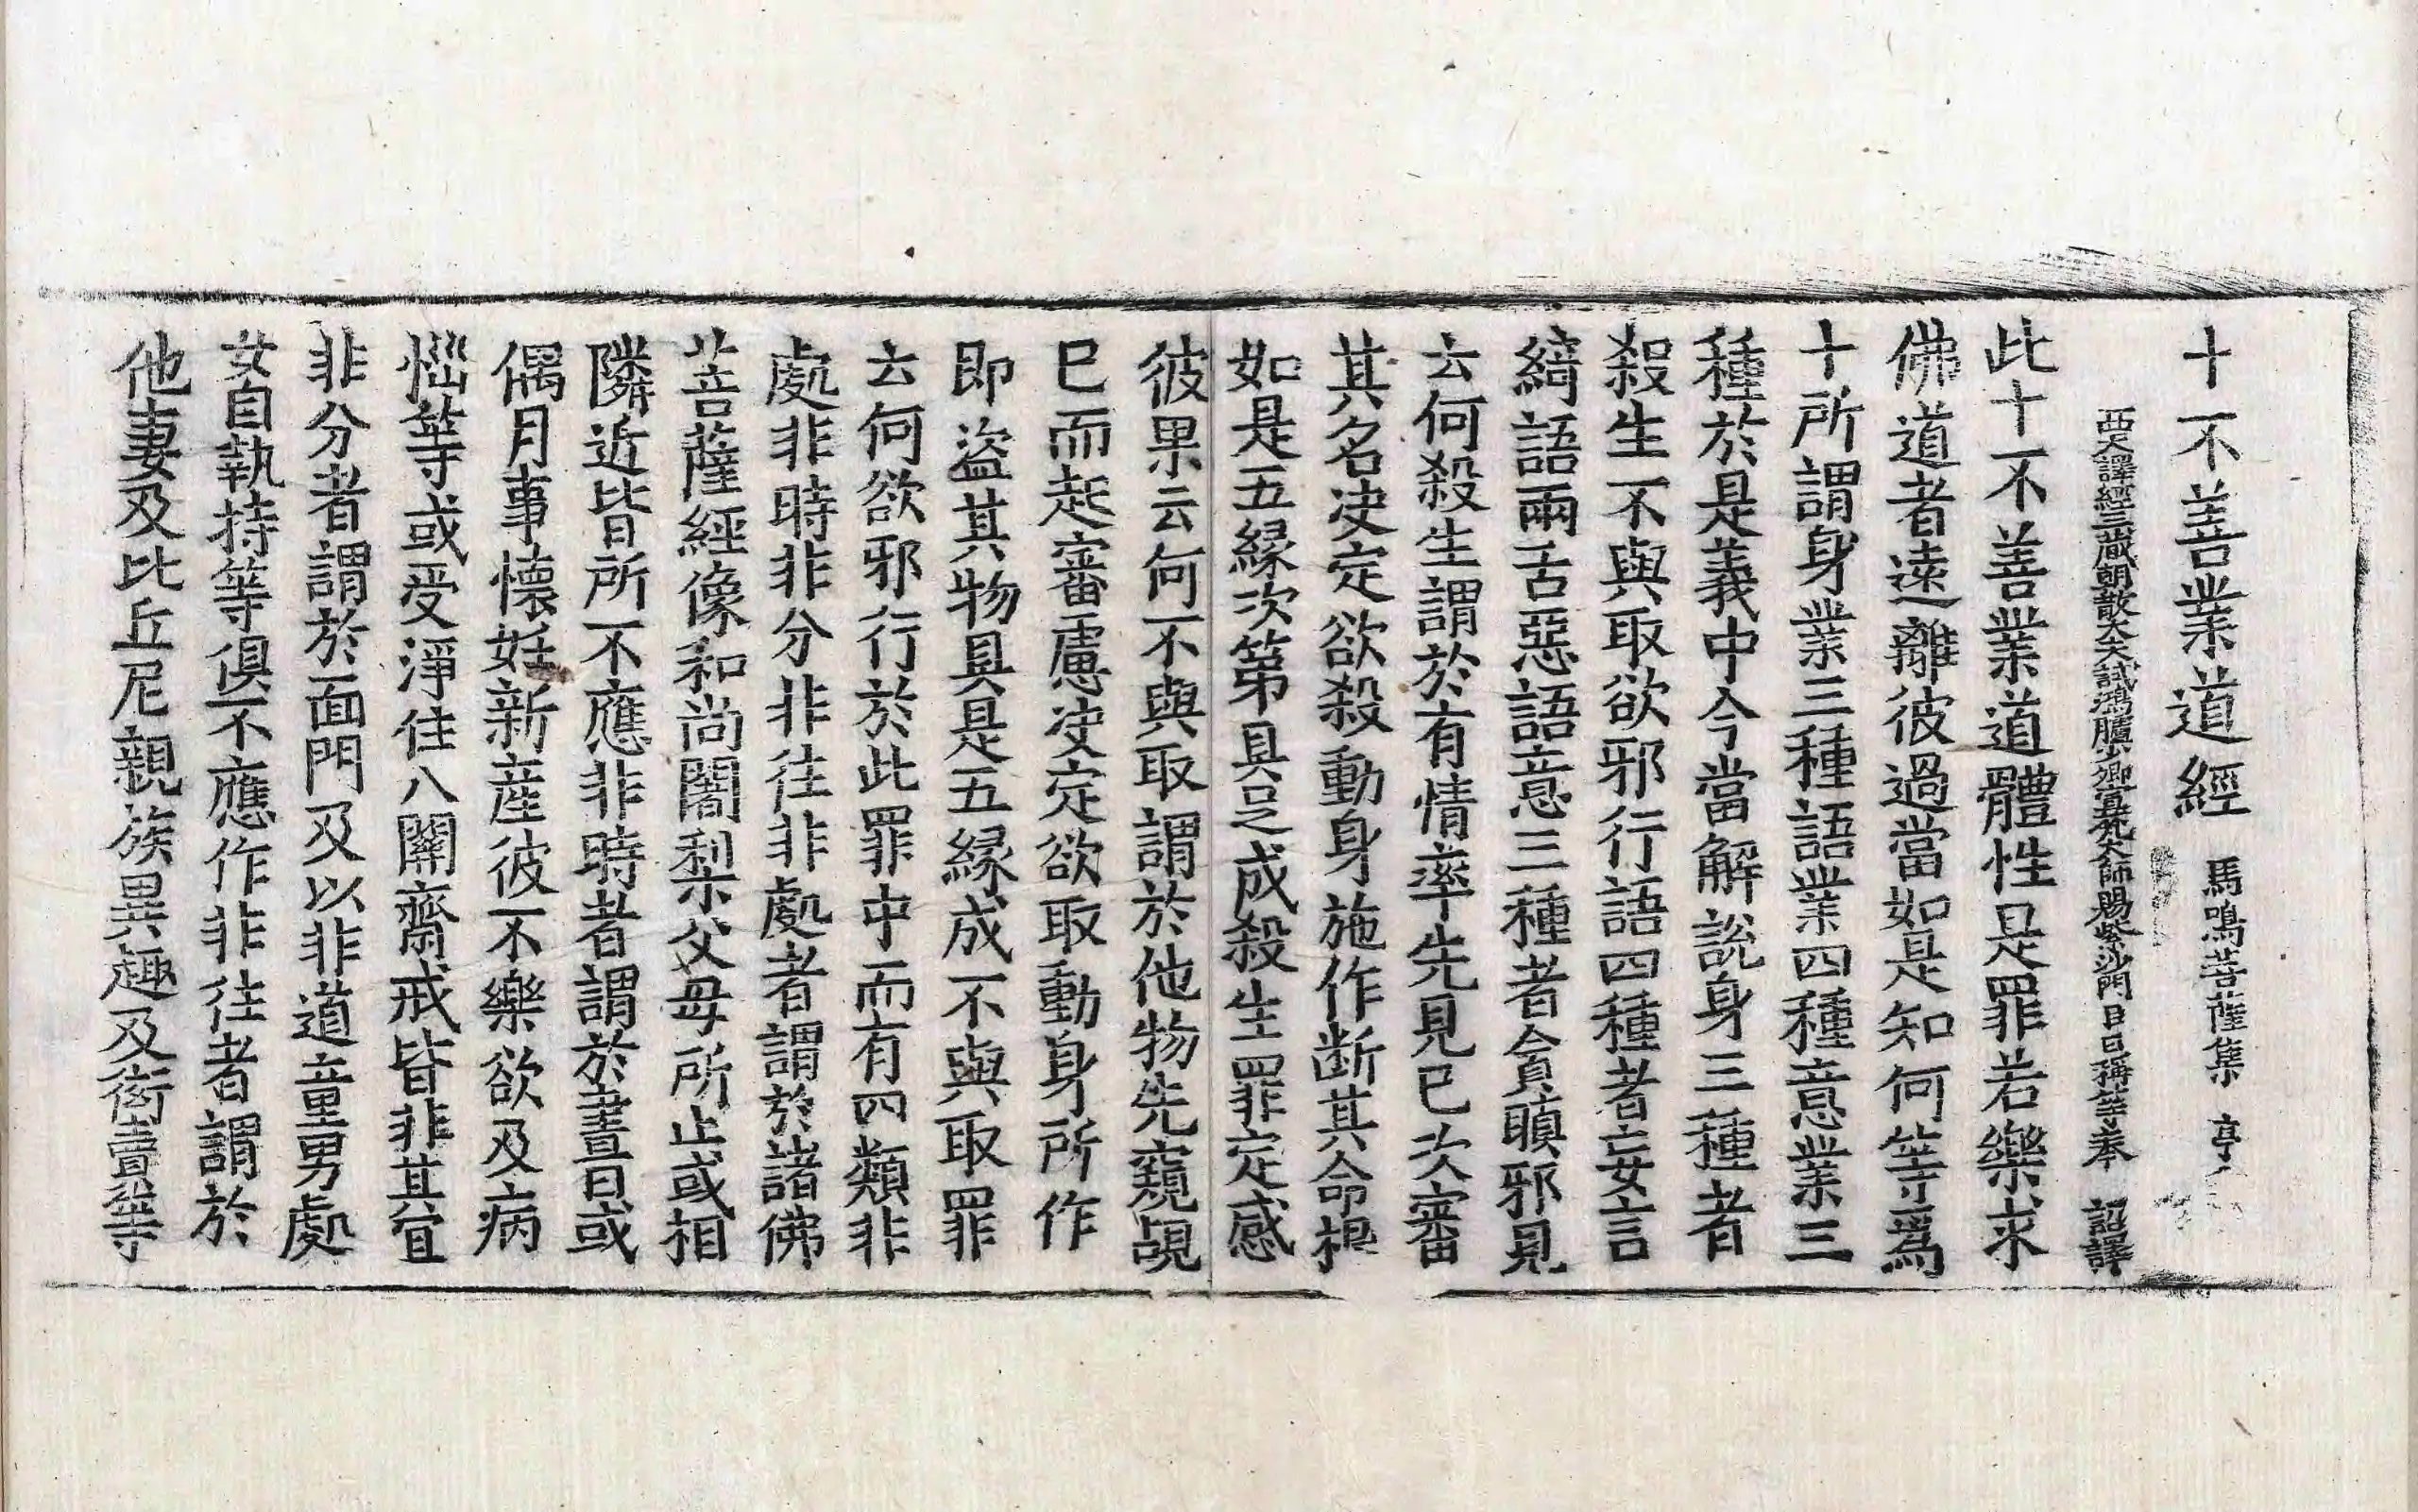 十不善業道經　馬鳴菩薩集　亭
西天譯經三藏朝散大夫試鴻臚少卿宣梵大師賜紫沙門臣日稱等奉　詔譯
此十不善業道體性是罪若樂求
佛道者遠離彼過當如是知何等爲
十所謂身業三種語業四種意業三
種於是義中今當解說身三種者
殺生不與取欲邪行語四種者妄言
綺語兩舌惡語意三種者貪瞋邪見
云何殺生謂於有情率先見已次審
其名决定欲殺動身施作断其命根
如是五緣次第具足成殺生罪定感
彼果云何不與取謂於他物先窺覘
已而起審慮决定欲取動身所作
即盜其物具是五緣成不與取罪
云何欲邪行於此罪中而有四類非
處非時非分非往非處者謂於諸佛
菩薩經像和尚闍梨父母所止或相
隣近皆所不應非時者謂於晝日或
偶月事懷妊新産彼不樂欲及病
惱等或受淨住八關齋戒皆非其宜
非分者謂於面門及以非道童男處
女自執持等俱不應作非往者謂於
他妻及比丘尼親族異趣及衒賣等